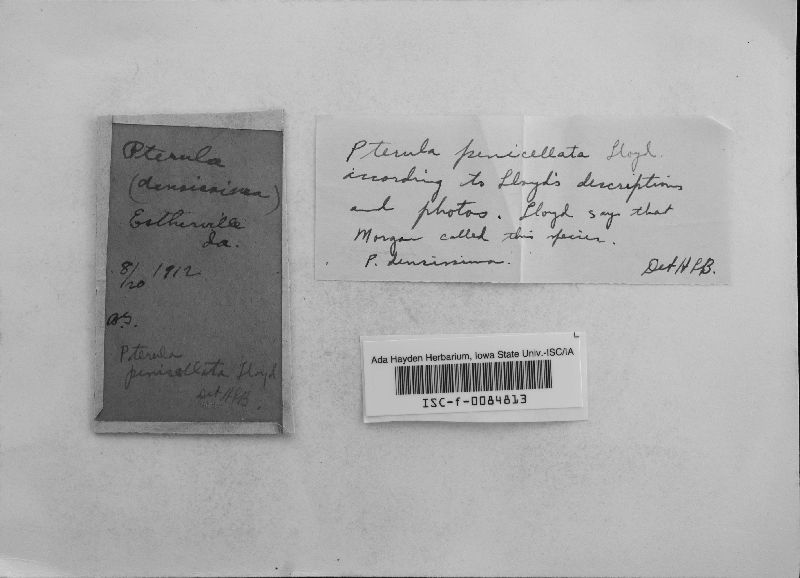 Pterula
(densissima)
Estherville
Ia.
8/20 1912
Pterula
penicellata Lloyd
Det HPB.
Pterula penicellata Lloyd.
according to Lloyd's descriptions
and photos. Lloyd says that
Morgan called this species.
P. densissima.
Det HPB.
Ada Hayden Herbarium, Iowa State Univ.-ISC/IA
ISC-f-0084813